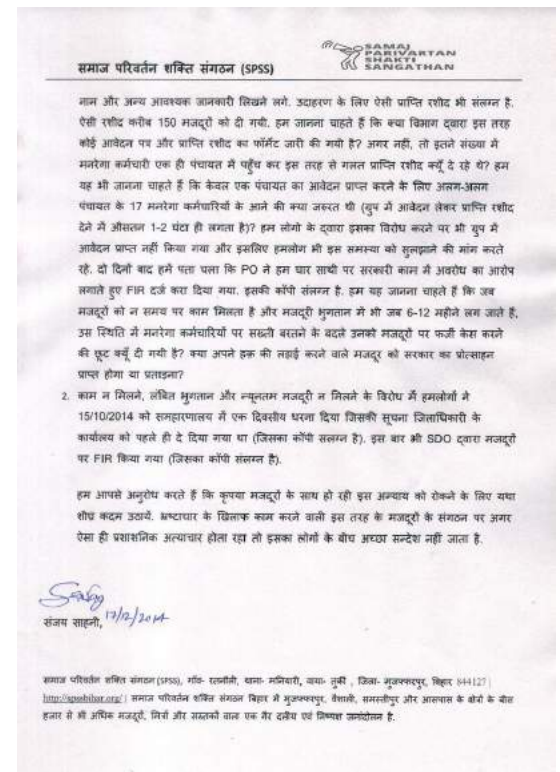 समाज परिवर्तन शक्ति संगठन (SPSS)
SAMAJ
PARIVARTAN
SHAKTI
SANGATHAN
नाम और अन्य आवश्यक जानकारी लिखने लगे. उदाहरण के लिए ऐसी प्राप्ति रशीद भी संलग्न है.
ऐसी रशीद करीब 150 मजदूरों को दी गयी. हम जानना चाहते हैं कि क्या विभाग द्वारा इस तरह
कोई आवेदन पत्र और प्राप्ति रशीद का फॉर्मेट जारी की गयी है? अगर नहीं, तो इतने संख्या में
मनरेगा कर्मचारी एक ही पंचायत में पहुँच कर इस तरह से गलत प्राप्ति रशीद क्यूँ दे रहे थे? हम
यह भी जानना चाहते हैं कि केवल एक पंचायत का आवेदन प्राप्त करने के लिए अलग-अलग
पंचायत के 17 मनरेगा कर्मचारियों के आने की क्या जरुरत थी (ग्रुप में आवेदन लेकर प्राप्ति रशीद
देने में औसतन 1-2 घंटा ही लगता है)? हम लोगो के द्वारा इसका विरोध करने पर भी ग्रुप में
आवेदन प्राप्त नहीं किया गया और इसलिए हमलोग भी इस समस्या को सुलझाने की मांग करते
रहे. दो दिनों बाद हमें पता चला कि PO ने हम चार साथी पर सरकारी काम में अवरोध का आरोप
लगाते हुए FIR दर्ज करा दिया गया. इसकी कॉपी संलग्न है. हम यह जानना चाहते हैं कि जब
मजदूरों को न समय पर काम मिलता है और मजदूरी भुगतान में भी जब 6-12 महीने लग जाते हैं,
उस स्थिति में मनरेगा कर्मचारियों पर सख्ती बरतने के बदले उनको मजदूरों पर फर्जी केस करने
की छूट क्यूँ दी गयी है? क्या अपने हक़ की लड़ाई करने वाले मजदूर को सरकार का प्रोत्साहन
प्राप्त होगा या प्रताड़ना?
2. काम न मिलने, लंबित भुगतान और न्यूनतम मजदूरी न मिलने के विरोध में हमलोगों ने
15/10/2014 को समहारणालय में एक दिवसीय धरना दिया जिसकी सूचना जिलाधिकारी के
कार्यालय को पहले ही दे दिया गया था (जिसका कॉपी सलग्न है). इस बार भी SDO द्वारा मजदूरों
पर FIR किया गया (जिसका कॉपी संलग्न है).
हम आपसे अनुरोध करते हैं कि कृपया मजदूरों के साथ हो रही इस अन्याय को रोकने के लिए यथा
शीघ्र कदम उठायें. भ्रष्टाचार के खिलाफ काम करने वाली इस तरह के मजदूरों के संगठन पर अगर
ऐसा ही प्रशाशनिक अत्याचार होता रहा तो इसका लोगों के बीच अच्छा सन्देश नहीं जाता है.
संजय साहनी, 17/12/2014
समाज परिवर्तन शक्ति संगठन (SPSS), गाँव- रतनौली, थाना- मनियारी, वाया- तुर्की , जिला- मुजफ्फरपुर, बिहार 844127 |
http://spssbihar.org/ | समाज परिवर्तन शक्ति संगठन बिहार में मुजफ्फरपुर, वैशाली, समस्तीपुर और आसपास के क्षेत्रों के बीस
हजार से भी अधिक मजदूरों, मित्रों और वाला एक गैर दलीय एवं निष्पक्ष जनांदोलन है.